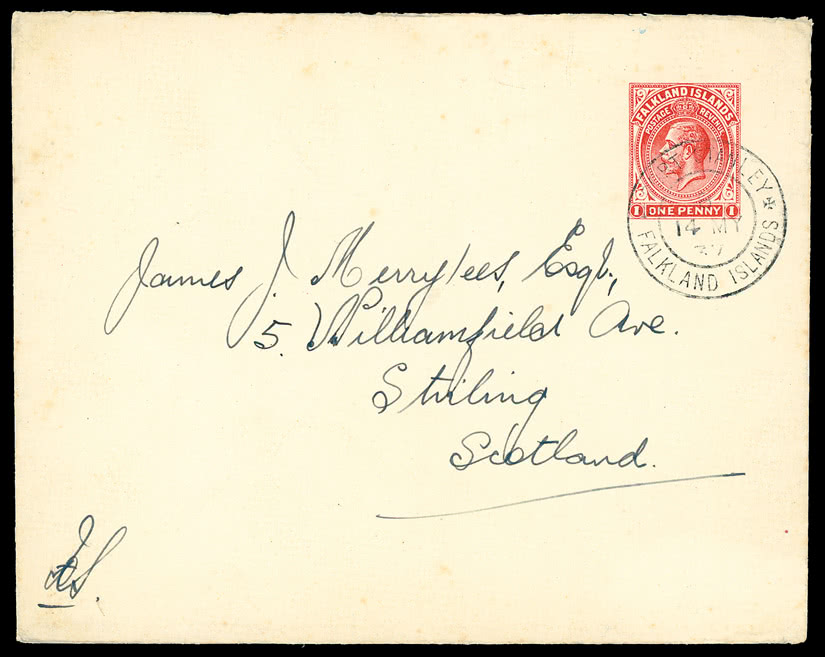 FALKLAND ISLANDS
POSTAGE REVENUE
1 ONE PENNY 1
STANLEY
14 MY
37
FALKLAND ISLANDS
James J. Merrylees, Esq.,
5. Williamfield Ave.
Stirling
Scotland.